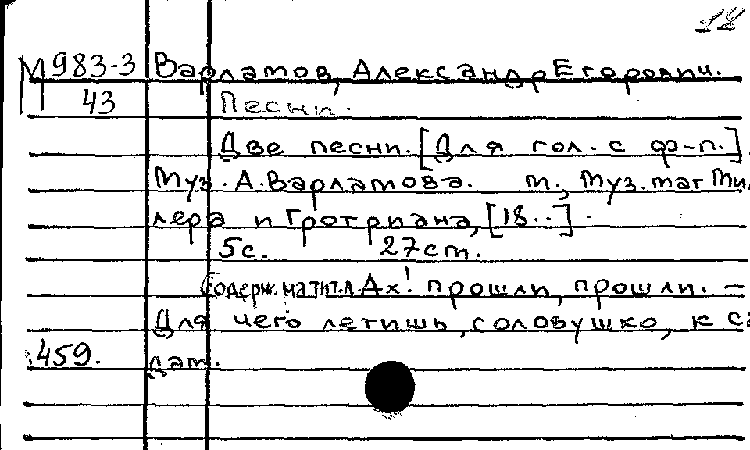 18
М 983-3 Варламов, Александр Егорович.
43 Песни.
Две песни. [Для гол. с ф-п.]
Муз. А. Варламова. м., Муз. маг Мил
лера и Гротриана, [18..].
5с. 27 см.
Содерж. на тит. л Ах! прошли, прошли. –
Для чего летишь, соловушко, к са
459. дам.